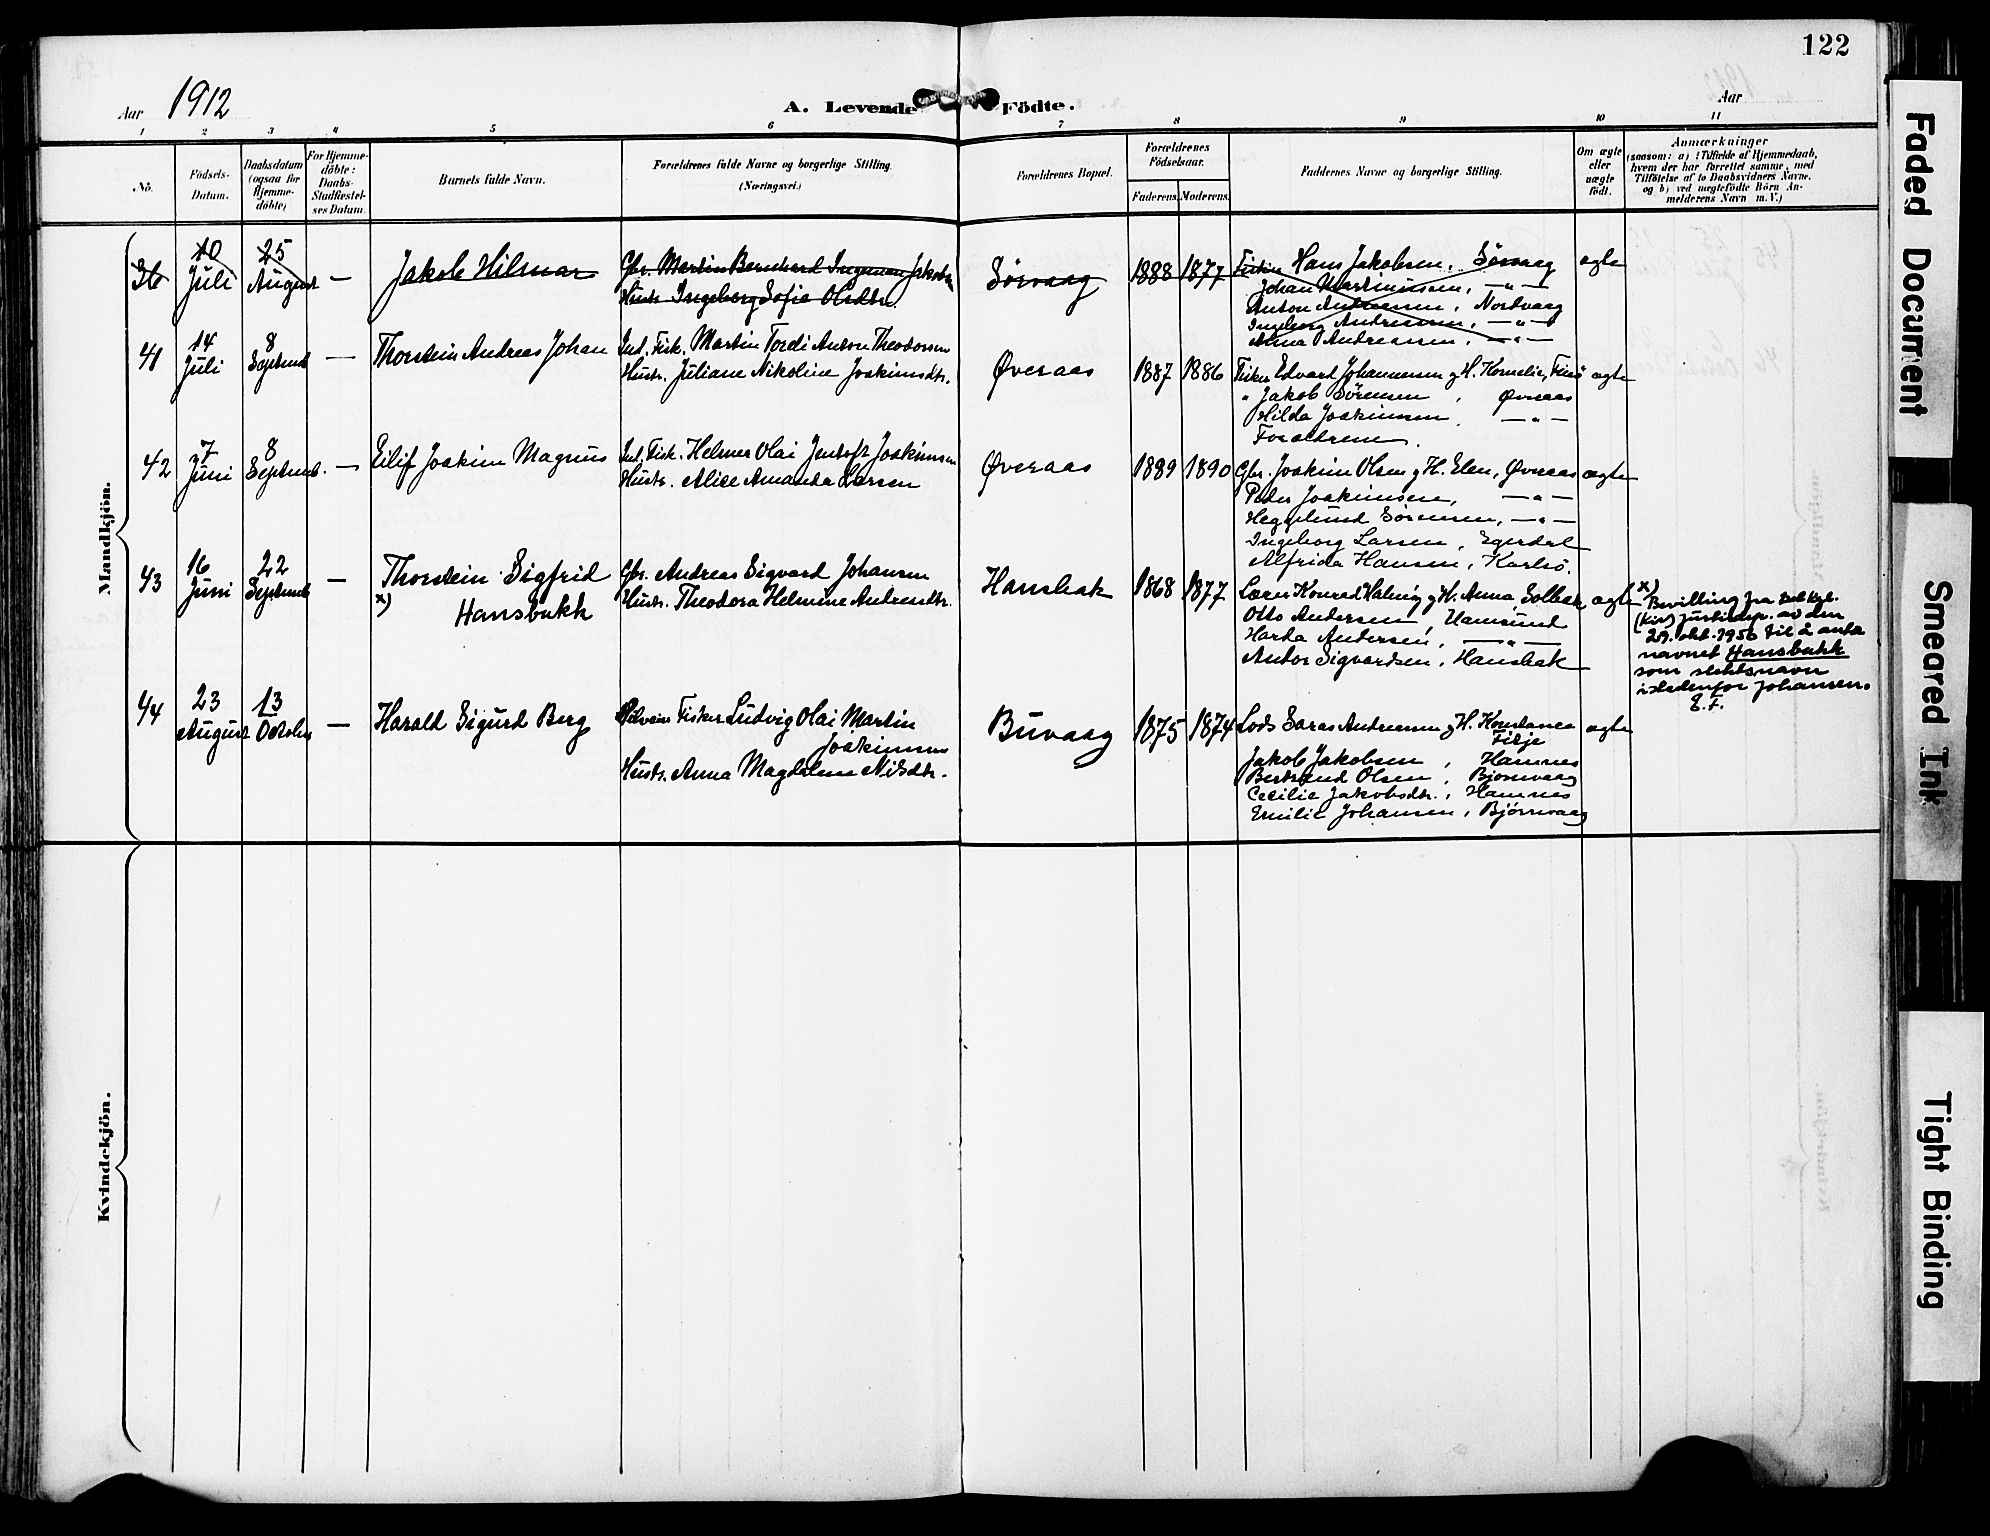 122
Aar 1912
A. Levende Födte.
Aar
1 2 3 4 5 6 7 8 9 10 11
No.
Födsels-
Datum.
Daabsdatum
(ogsaa for
Hjemme-
döbte)
For Hjemme-
döbte:
Daabs-
Stadfæstel-
ses Datum.
Barnets fulde Navn.
Forældrenes fulde Navne og borgerlige Stilling.
(Næringsvei.)
Forældrenes Bopæl.
Forældrenes
Födselsaar.
Faderens. Moderens.
Faddernes Navne og borgerlige Stilling.
Om ægte
eller
uægte
födt.
Anmærkninger
(saasom: a) i Tilfælde af Hjemmedaab,
hvem der har forrettet samme, med
Tilföielse af to Daabsvidners Navne,
og b) ved uægtefödte Börn An-
melderens Navn m. V.)
Mandkjön.
36
10
Juli
25
August
—
Jakob Hilmar
Gbr. Martin Bernhard Ingeman Jakobs
Hustr. Ingeborg Sofie Olsdtr.
Sørvaag
1888 1877
Fisker Hans Jakobsen, Sørvaag
Johan Martinussen, —"—
Anton Andreassen, Nordvaag
Ingeborg Andreassen, —"—
Anna Andreassen, —"—
ægte
41
14
Juli
8
Septemb
—
Thorstein Andreas Johan
Ind. Fisk. Martin Tordi Anton Theodorsen
Hustr. Juliane Nikoline Joakimsdtr.
Øveraas
1887 1886
Fisker Edvart Johannessen g H. Kornelie, Finö
" Jakob Sørensen, Øveraas
Hilda Joakimsen, —"—
Forældrene.
ægte
42
7
Juni
8
Septemb.
—
Eilif Joakim Magnus
Ind. Fisk. Helmer Olai Jentoft Joakimsen
Hustr. Alice Amanda Larsen
Øveraas
1889 1890
Gbr. Joakim Olsen g H. Elen, Øveraas
Peder Joakimsen, —"—
Hegglund Sørensen, —"—
Ingeborg Larsen, Egerdal
Alfrida Hansen, Karlsö.
ægte
43
16
Juni
22
Septemb
—
Thorstein Sigfrid
x) Hansbakk
Gbr. Andreas Sigvard Johansen
Hustr. Theodora Helmine Andreasdtr.
Hansbak
1868 1877
Lærer Konrad Halsing g H. Anna, Solbak
Otto Andersen, Hamsund
Harda Andersen, —"—
Anton Sigvardsen, Hansbak
ægte
x)
Bevilling fra Det Kgl.
(Kirk) justisdep. av den
29. okt. 1950 til å anta
navnet Hansbakk
som slektsnavn
istedenfor Johansen.
E.F.
44
23
August
13
Octobr
—
Harald Sigurd Berg
Selveier Fisker Ludvig Olai Martin
Joakimsen
Hustr. Anna Magdalena Nilsdtr.
Buvaag
1875 1874
Lods Saras Andreassen g H. Konstance
Filje
Jakob Jakobsen, Hamnes
Bertrand Olsen, Bjørnvaag
Cecilie Jakobsdtr., Hamnes
Emilie Johansen, Bjørnvaag
ægte
Kvindekjön.
Faded Document
Smeared Ink
Tight Binding